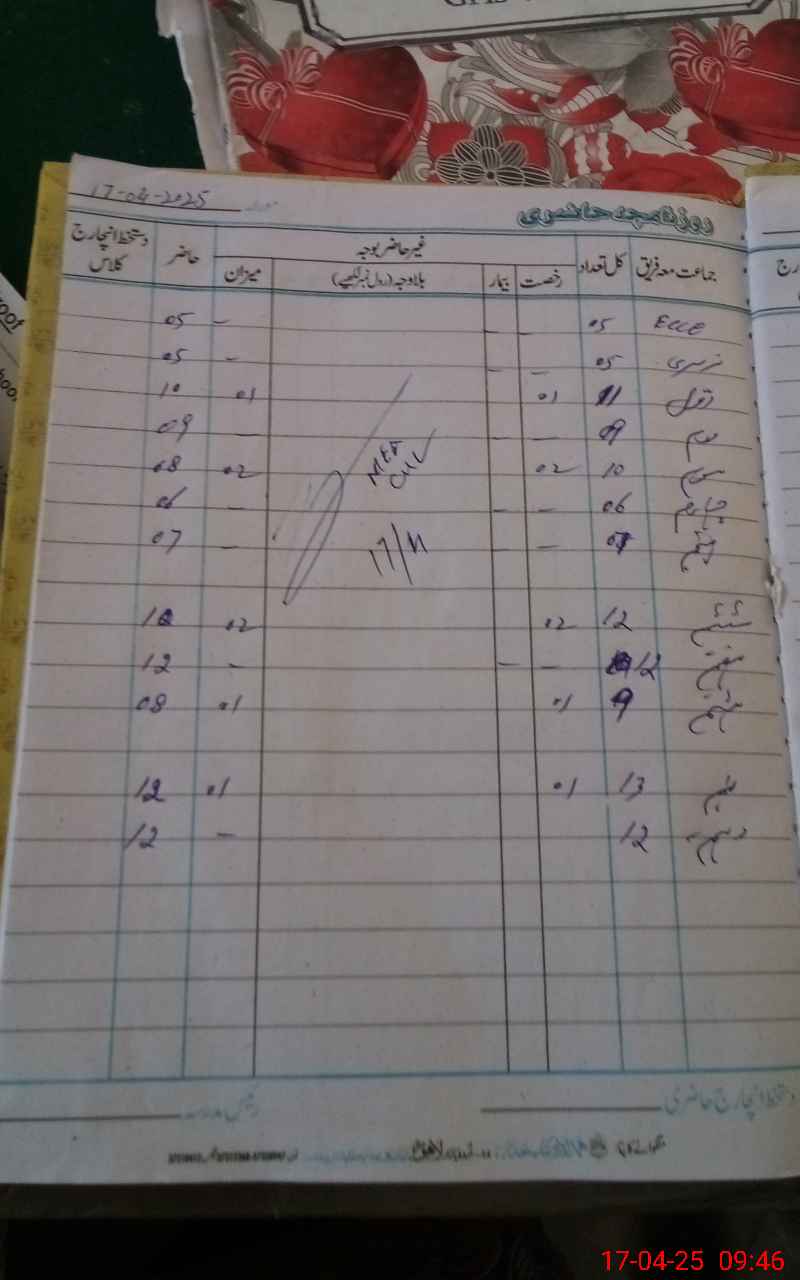 17-04-2025
روزنامچہ حاضری
جماعت معہ فریق کل تعداد غیر حاضر بوجہ حاضر دستخط انچارج کلاس
رخصت بیمار بلاوجہ (رول نمبر لکھیے) میزان
ECCE 05 - - - 05
نرسری 05 - - - 05
اول 11 01 01 10
دوم 09 - - - 09
سوم 10 02 02 08
چہارم 06 - - - 06
پنجم 07 - - - 07
ششم 12 02 02 10
ہفتم 12 - - - 12
ہشتم 9 01 01 08
نہم 13 01 01 12
دہم 12 - 12
17/4
دستخط انچارج حاضری
رئیس مدرسہ
17-04-25 09:46